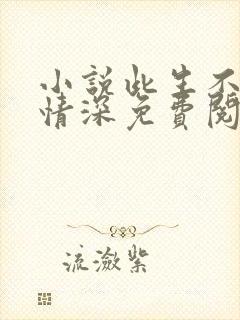 小説此生不
情深免費閱
流瀲紫